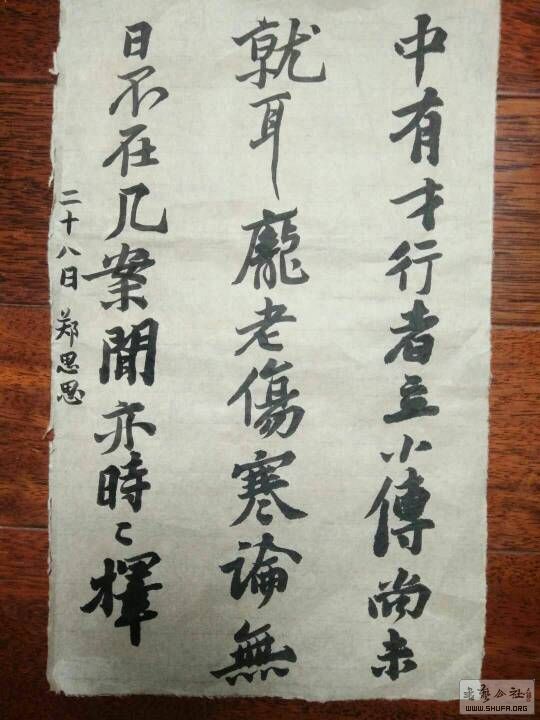 中有才行者立小傳尚未
就耳龐老傷寒論無
日不在几案閒亦時〻擇
二十八日 郑思思
WWW.SHUFA.ORG